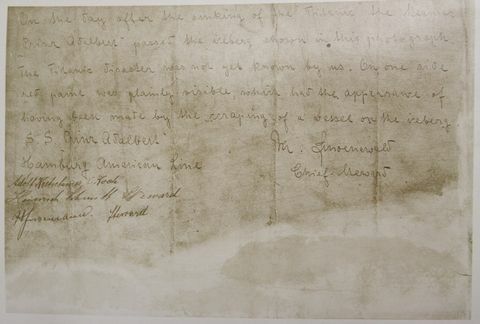 On the day after the sinking of the Titanic the steamer
Prinz Adalbert passed the iceberg shown in this photograph
The Titanic disaster was not yet known by us. On one side
red paint was plainly visible, which had the appearance of
having been made by the scraping of a vessel on the iceberg
S.S. Prinz Adalbert
Mr. Linoenewald
Hamburg American Line
Chief-Steward
Steward
Steward